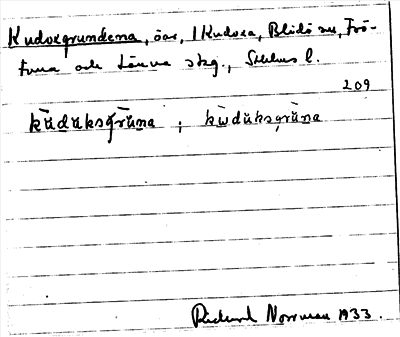 Kudoxgrundena, öar, I Kudoxa, Blidö sn, Frö-
tuna och Länna skg., Sthlms l.
209
kùdùksgrùna ; kùdùksgrùna
Rickard Norrman 1933.